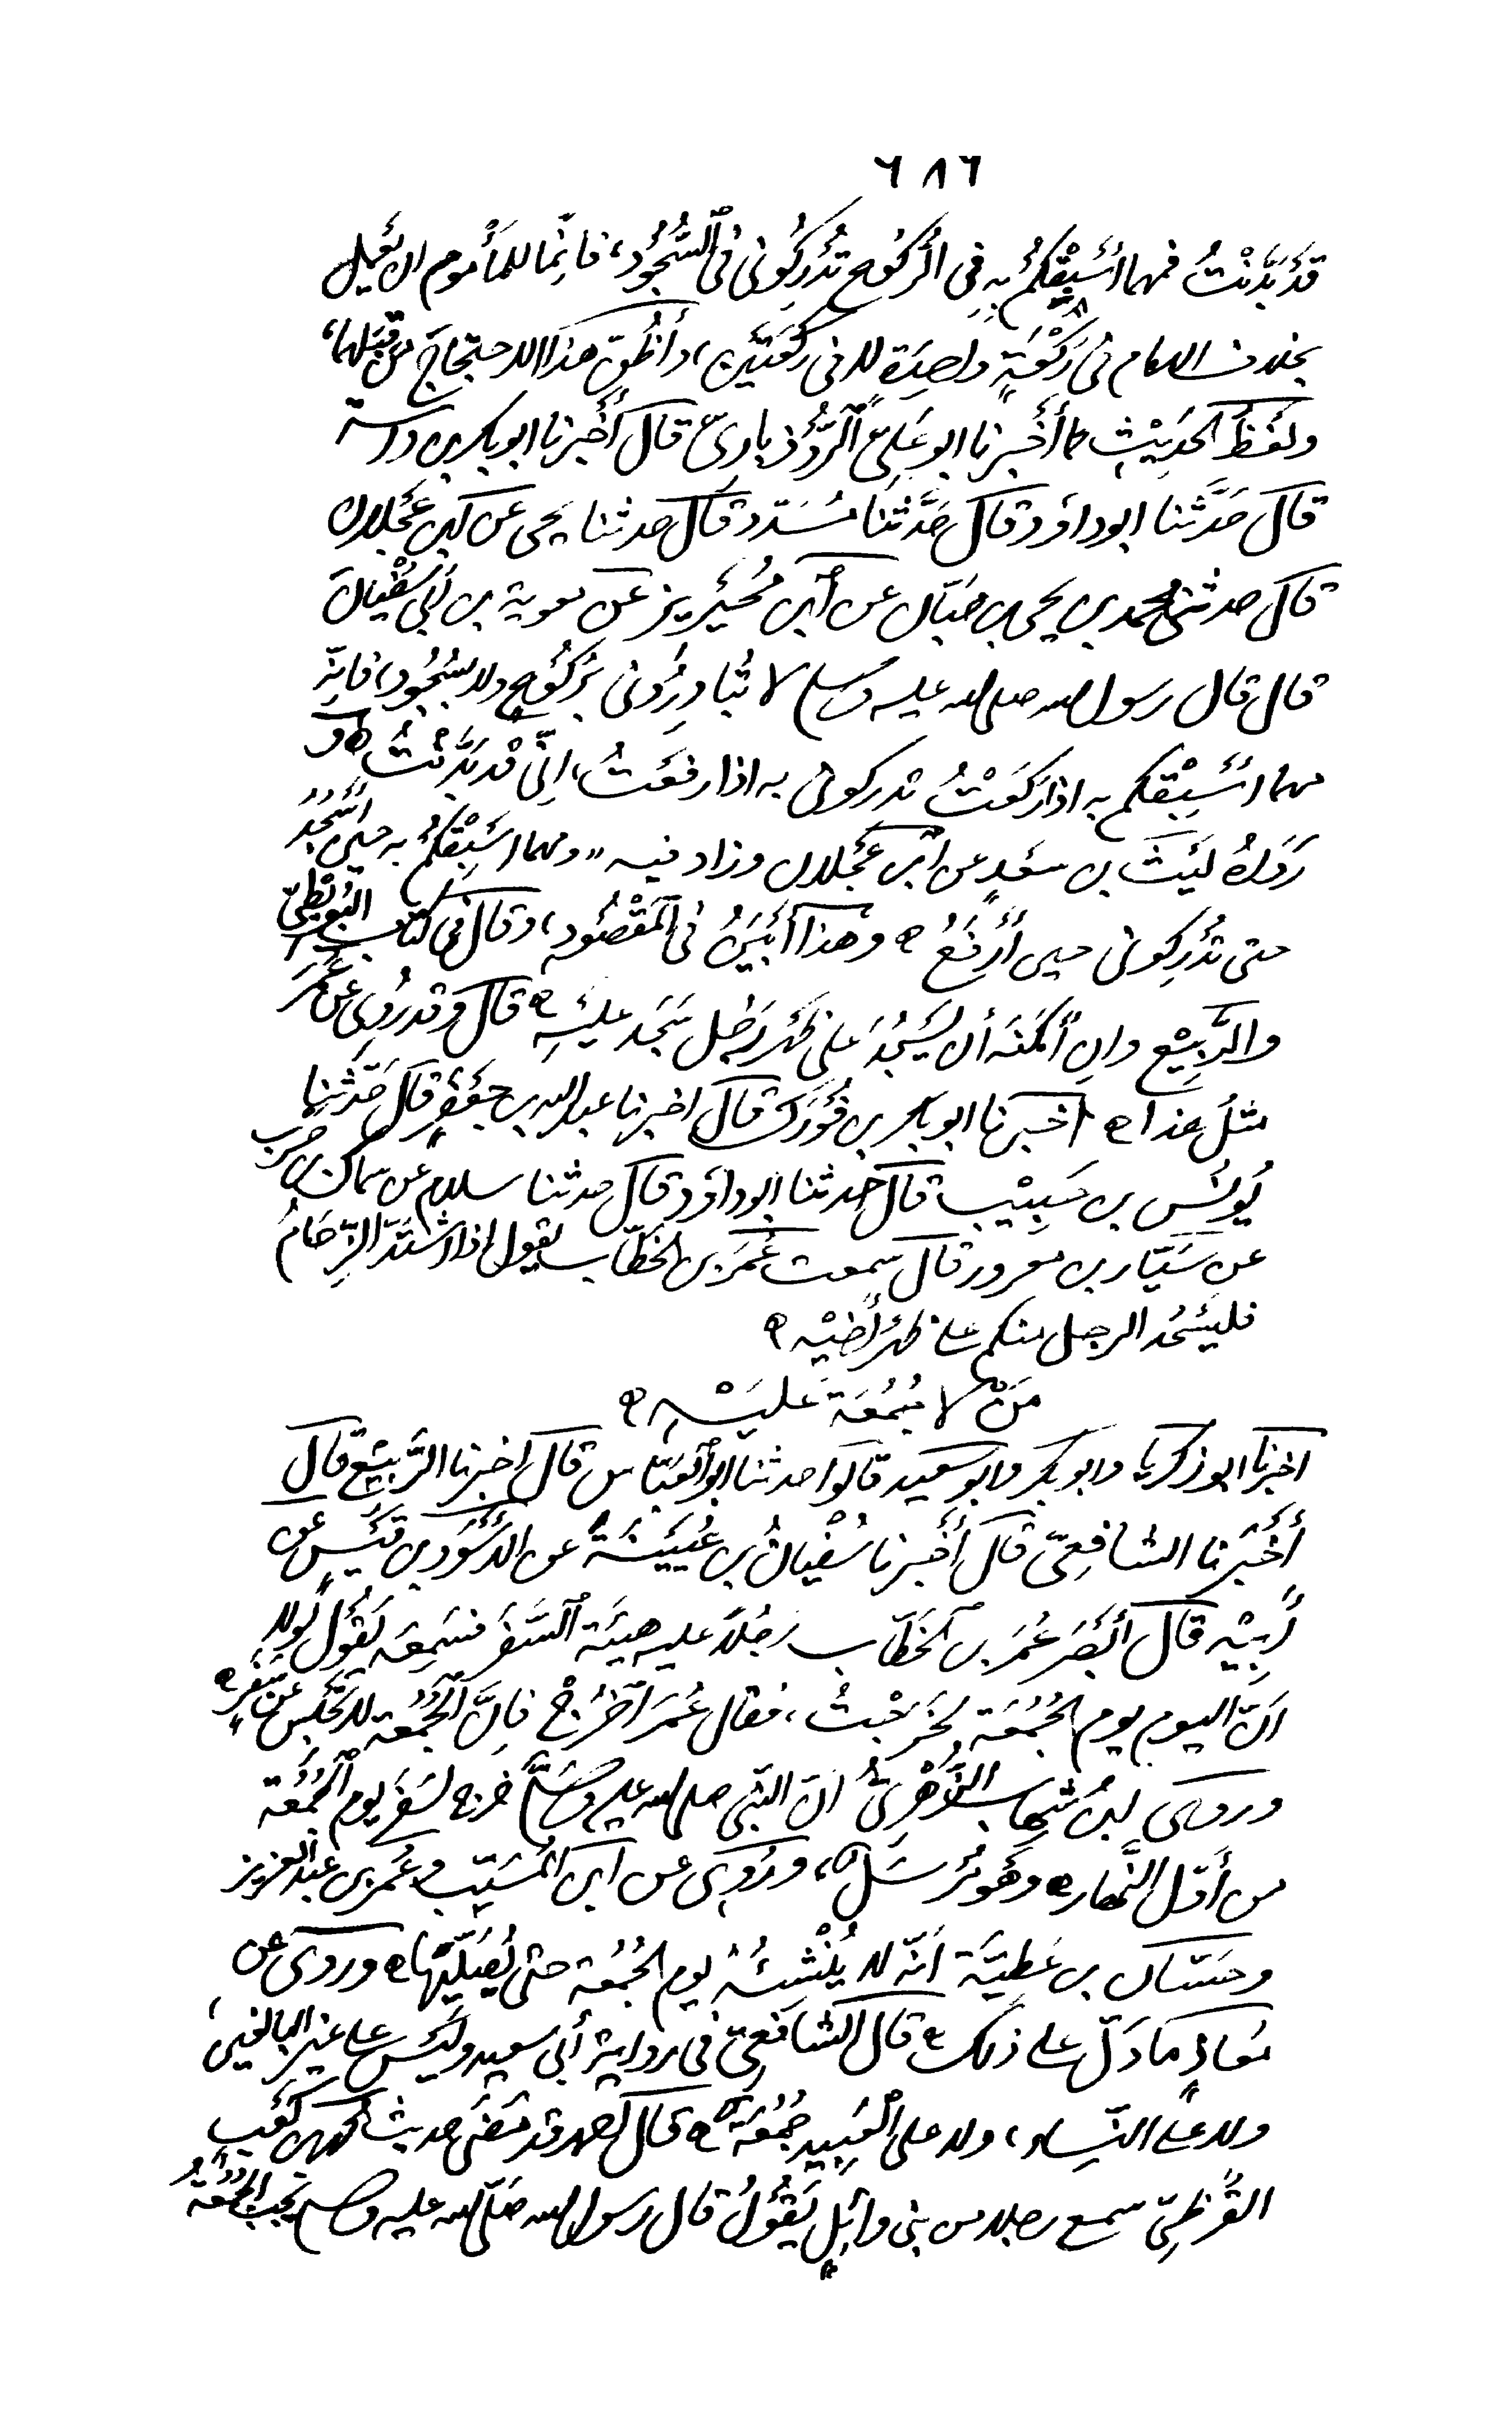 ٦٨٦
قد بَدَّنْتُ فمهما اَسْبِقْكُمْ بِهِ فِي الرُّكُوعِ تُدْرِكُونى فى السُّجُودِ، فاِنّما للمأموم ان يَعمل
بخلاف الامام فى رَكْعَةٍ واحِدَةٍ لا فى ركعَتَيْنِ، وأظُنّ هذا الاحتجاجَ من قِبَلِهما،
ولَفظُ الحدِيْثِ كما أخْبرنا ابو عَلِىّ الرُّوذبارِىّ قال أخْبرنا ابو بكر بن داسة
قال حَدَّثنا ابو داوٗد قال حَدَّثنا مُسَدّد قال حدثنا يحيى عن ابن عَجْلان
قال حدثنى محمد بن يحيى بن حَبّان عن اَبن مُحَيْريز عن معوية بن اَبى سُفْيان
قال قال رسول الله صلى الله عليه وسلم لا تُبادِرُونى برُكُوعٍ ولا بسُجُودٍ، فاِنّه
مهما اَسْبِقْكم به اذا رَكَعْتُ تدركونى به اذا رفعْتُ، اِنّى قد بَدَّنْتُ ه و
رَوَاهُ لَيْثُ بن سَعْدٍ عن ابن عَجْلان وزاد فيه "ومهما اسْبِقْكُمْ به حين اَسْجُدُ
حتى تُدْرِكونى حين أرْفَعُ ه وهذا أبْيَنُ فى المقْصُودِ، وقال فى كتاب البُوَيْطِىّ
والرَّبِيْعِ وان أمكنَه أن يَسْجُدَ على ظَهْرِ رَجُل سَجَد عليْهِ ه قال وقد رُوِى عن عُمَرَ
مثلُ هذا ه اخبرنا ابو بكر بن فُوْرَك قال اخبرنا عبد الله بن جَعْفَرٍ قال حَدَّثنا
يُونُس بن حَبِيْب قال حَدثنا ابو داوٗد قال حدثنا سلام عن سماك بن حرب
عن سَيّار بن معرور قال سمعت عُمَر بن الخطّاب يقول اذا اشْتَدّ الزِّحَامُ
فليَسْجُد الرجل منكم على ظهْرِ اَخِيْه ه
مَنْ لا جُمُعَة عَليْهِ ه
اخبرنا ابو زكريا وابو بكر وابو سعيد قالوا حدثنا ابو العَبّاس قال اخبرنا الرَّبِيْعُ قال
أخْبَرَنا الشافِعِىّ قال أخْبرنا سُفْيانُ بن عُيَيْنَةَ عن الاَسْوَد بن قَيْسٍ عن
أبِيْهِ قال أبْصَرَ عُمَر بن الخَطّاب رَجُلاً عليه هيئَةُ السَّفَر فسَمِعَه يَقُوْل لولا
اَنّ اليوم يوم الجُمُعَة لخَرَجْتُ، فقال عُمَرُ اُخْرُجْ فاِنَّ الجُمُعَة لا تَحْبِسُ عن سَفَرٍ ه
وروى ابنُ شِهاب الزُّهْرِىُّ انّ النّبى صلى الله عليه وسَلَّمَ خرج لسَفَرٍ يوم الجُمُعَة
من أوّل النَّهار ه وهُوَ مُرْسَلٌ، ورُوِىَ عن ابن المُسَيّب وعُمَر بن عبد العزيز
وحسّان بن عَطِيّة اَنّه لا يُنْشِئُهُ يوم الجُمُعَة حتّى يُصَلِّيَها ه وروى عن
مُعاذٍ مادَلّ على ذلك ه قال الشافعِىّ فى رواية أبى سعيد وليْسَ على غير البالغين،
ولا على النِّساء، ولا على العَبِيد جُمُعَةٌ ه قال احمد قد مَضَى حديث محمد بن كَعْبٍ
القُرَظِىّ سمع رجلا من بنى وائِلٍ يَقُوْلُ قال رسول الله صَلّى الله عليه وسلم تجب الجُمُعَةُ